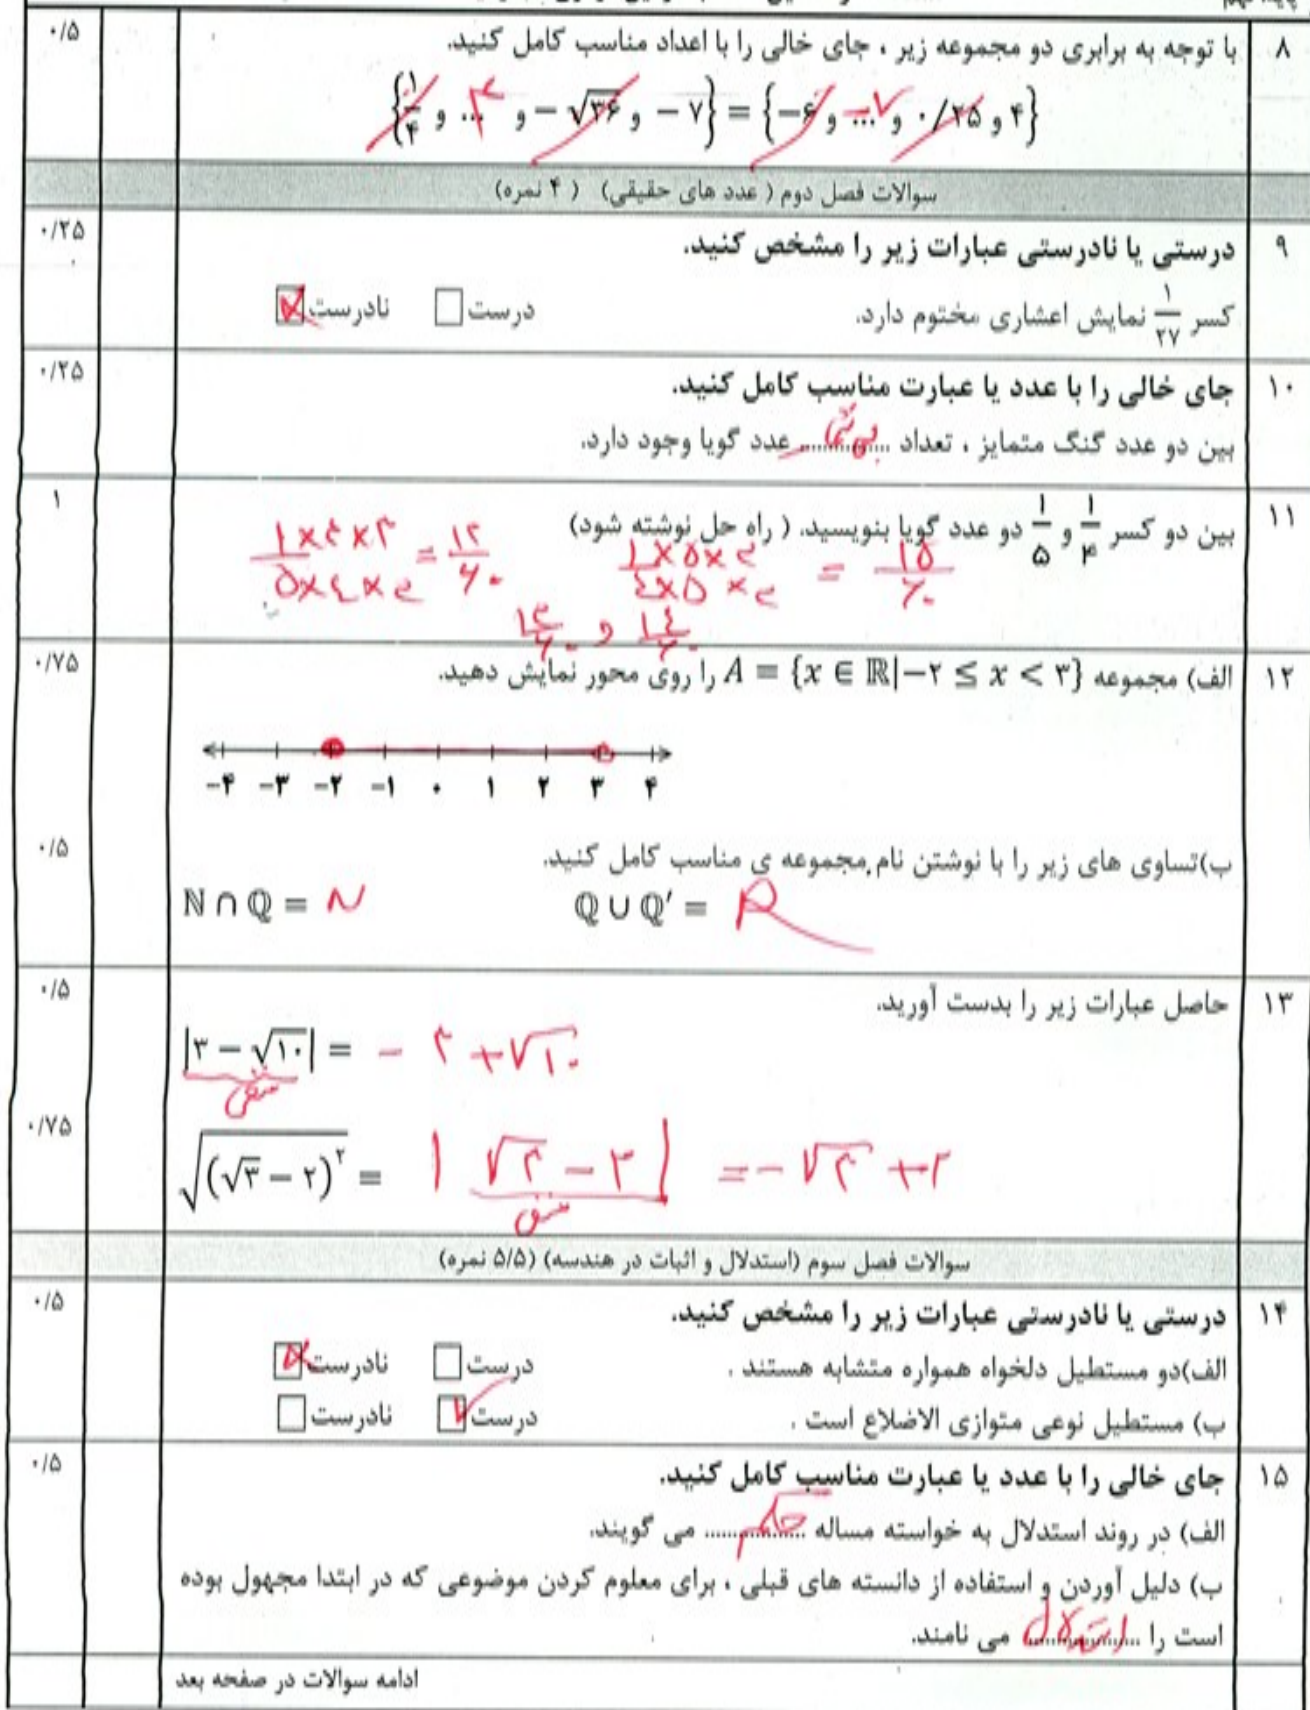 ۸ با توجه به برابری دو مجموعه زیر ، جای خالی را با اعداد مناسب کامل کنید. ۰/۵
{۱/۴ و ...۴ و -√۳۶ و -۷} = {-۶ و ...-۷ و ۰/۲۵ و ۴}
سوالات فصل دوم ( عدد های حقیقی) ( ۴ نمره)
۹ درستی یا نادرستی عبارات زیر را مشخص کنید. ۰/۲۵
کسر ۱/۲۷ نمایش اعشاری مختوم دارد. درست نادرست
۱۰ جای خالی را با عدد یا عبارت مناسب کامل کنید. ۰/۲۵
بین دو عدد گنگ متمایز ، تعداد ............ عدد گویا وجود دارد.
۱۱ بین دو کسر ۱/۴ و ۱/۵ دو عدد گویا بنویسید. ( راه حل نوشته شود) ۱
۱×۴×۳ / ۵×۴×۳ = ۱۲/۶۰ ۱×۵×۳ / ۴×۵×۳ = ۱۵/۶۰
۱۳/۶۰ و ۱۴/۶۰
۱۲ الف) مجموعه A = {x ∈ ℝ|−۲ ≤ x < ۳} را روی محور نمایش دهید. ۰/۷۵
−۴ −۳ −۲ −۱ ۰ ۱ ۲ ۳ ۴
ب)تساوی های زیر را با نوشتن نام مجموعه ی مناسب کامل کنید. ۰/۵
ℕ ∩ ℚ = N ℚ ∪ ℚ′ = R
۱۳ حاصل عبارات زیر را بدست آورید. ۰/۵
|۳ − √۱۰| = − ۳ + √۱۰
منفی
√(√۳ − ۲)^۲ = |√۳ − ۲| = −√۳ + ۲ ۰/۷۵
منفی
سوالات فصل سوم (استدلال و اثبات در هندسه) (۵/۵ نمره)
۱۴ درستی یا نادرستی عبارات زیر را مشخص کنید. ۰/۵
الف)دو مستطیل دلخواه همواره متشابه هستند . درست نادرست
ب) مستطیل نوعی متوازی الاضلاع است . درست نادرست
۱۵ جای خالی را با عدد یا عبارت مناسب کامل کنید. ۰/۵
الف) در روند استدلال به خواسته مساله ....حکم.... می گویند.
ب) دلیل آوردن و استفاده از دانسته های قبلی ، برای معلوم کردن موضوعی که در ابتدا مجهول بوده
است را ....استدلال.... می نامند.
ادامه سوالات در صفحه بعد